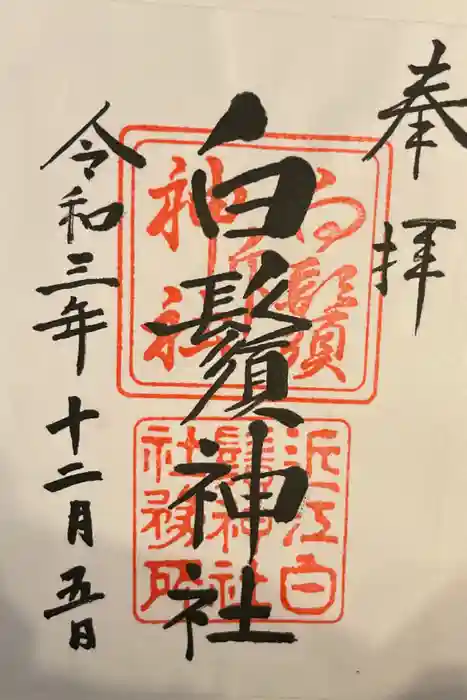 奉拝
白鬚神社
令和三年十二月五日
白鬚神社
近江白鬚神社社務所